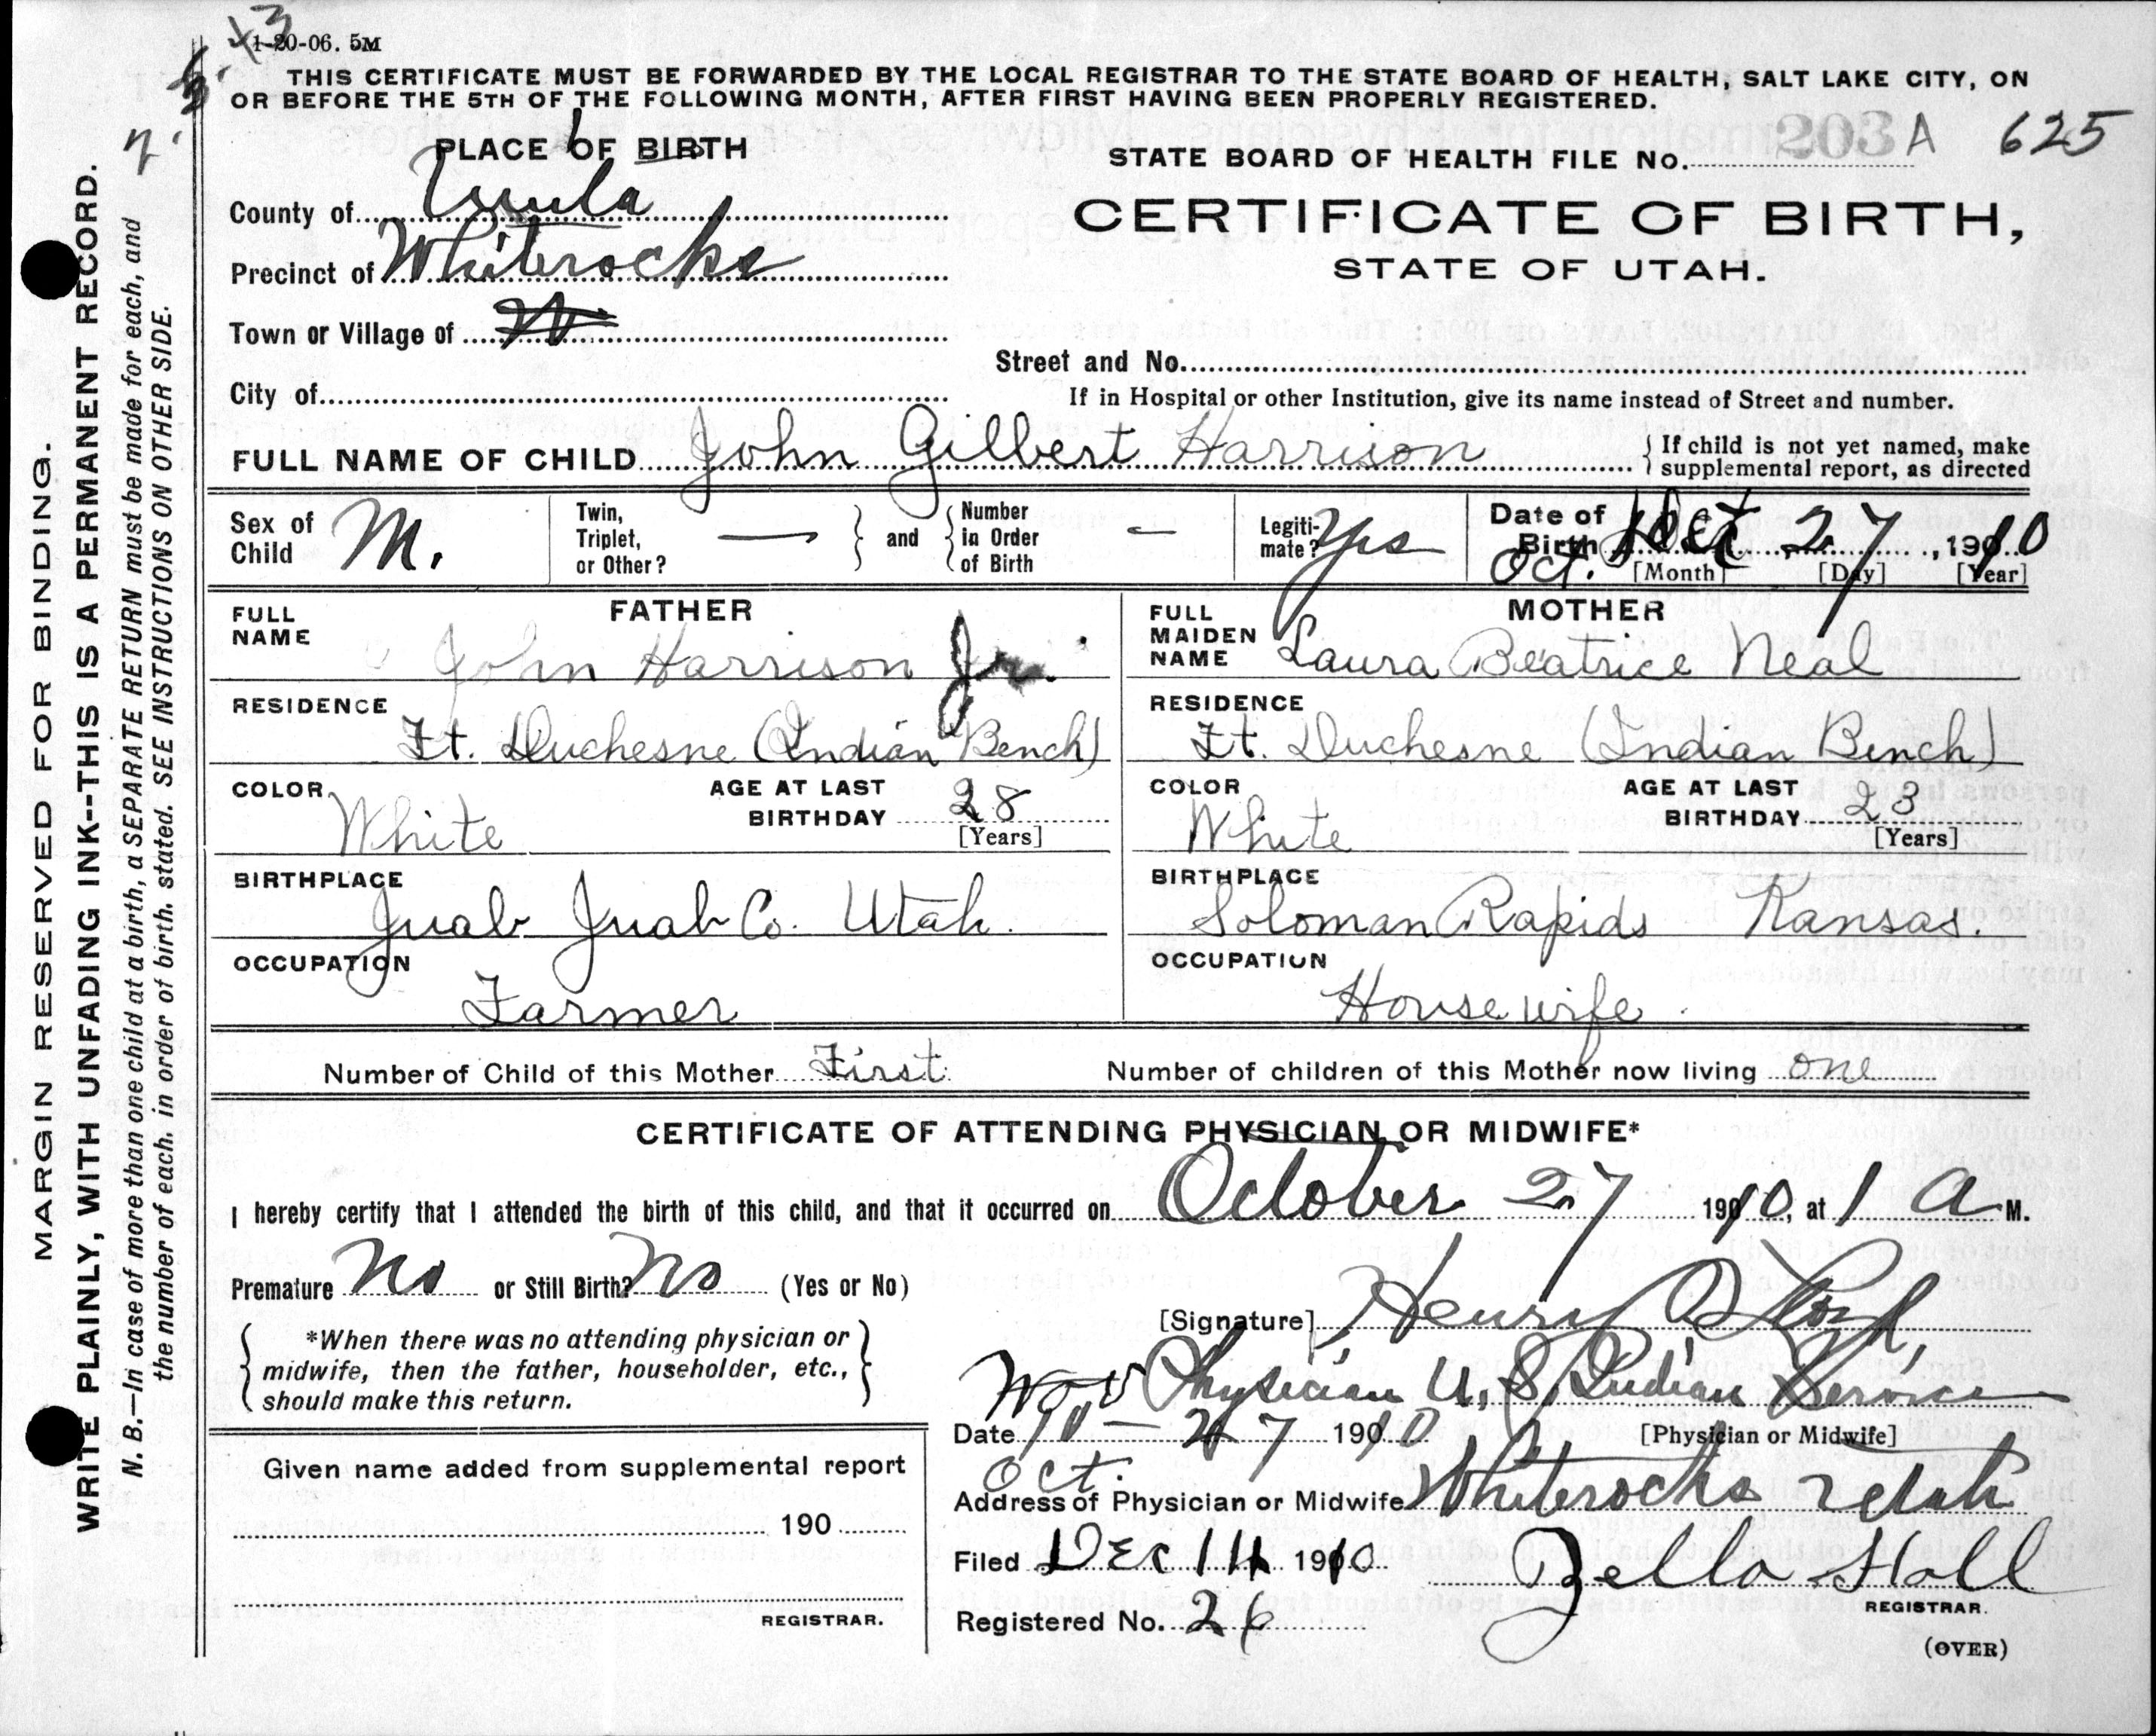 1-20-06. 5M
THIS CERTIFICATE MUST BE FORWARDED BY THE LOCAL REGISTRAR TO THE STATE BOARD OF HEALTH, SALT LAKE CITY, ON
OR BEFORE THE 5TH OF THE FOLLOWING MONTH, AFTER FIRST HAVING BEEN PROPERLY REGISTERED.
MARGIN RESERVED FOR BINDING.
WRITE PLAINLY, WITH UNFADING INK--THIS IS A PERMANENT RECORD.
N. B.—In case of more than one child at a birth, a SEPARATE RETURN must be made for each, and
the number of each, in order of birth, stated. SEE INSTRUCTIONS ON OTHER SIDE.
PLACE OF BIRTH
County of
Precinct of Whiterocks
Town or Village of
City of
STATE BOARD OF HEALTH FILE No. 203 A 625
CERTIFICATE OF BIRTH,
STATE OF UTAH.
Street and No.
If in Hospital or other Institution, give its name instead of Street and number.
FULL NAME OF CHILD John Gilbert Harrison { If child is not yet named, make
supplemental report, as directed
Sex of Child M. Twin, Triplet, or Other? — } and { Number in Order of Birth — Legiti-mate? Yes Date of Birth Oct. 27, 1910
[Month] [Day] [Year]
FATHER
FULL NAME John Harrison Jr.
RESIDENCE
Ft. Duchesne (Indian Bench)
COLOR White AGE AT LAST BIRTHDAY 28 [Years]
BIRTHPLACE
Juab Juab Co. Utah.
OCCUPATION
Farmer
MOTHER
FULL MAIDEN NAME Laura Beatrice Neal
RESIDENCE
Ft. Duchesne (Indian Bench)
COLOR White AGE AT LAST BIRTHDAY 23 [Years]
BIRTHPLACE
Soloman Rapids Kansas.
OCCUPATION
Housewife
Number of Child of this Mother First Number of children of this Mother now living one
CERTIFICATE OF ATTENDING PHYSICIAN OR MIDWIFE*
I hereby certify that I attended the birth of this child, and that it occurred on October 27 1910, at 1 A M.
Premature No or Still Birth? No (Yes or No)
*When there was no attending physician or
midwife, then the father, householder, etc.,
should make this return.
[Signature] Henry Lloyd,
Physician U.S. Indian Service
Date Oct. 27 1910 [Physician or Midwife]
Address of Physician or Midwife Whiterocks Utah
Given name added from supplemental report
190
REGISTRAR.
Filed Dec 14 1910 Zella Hall
REGISTRAR.
Registered No. 26
(OVER)